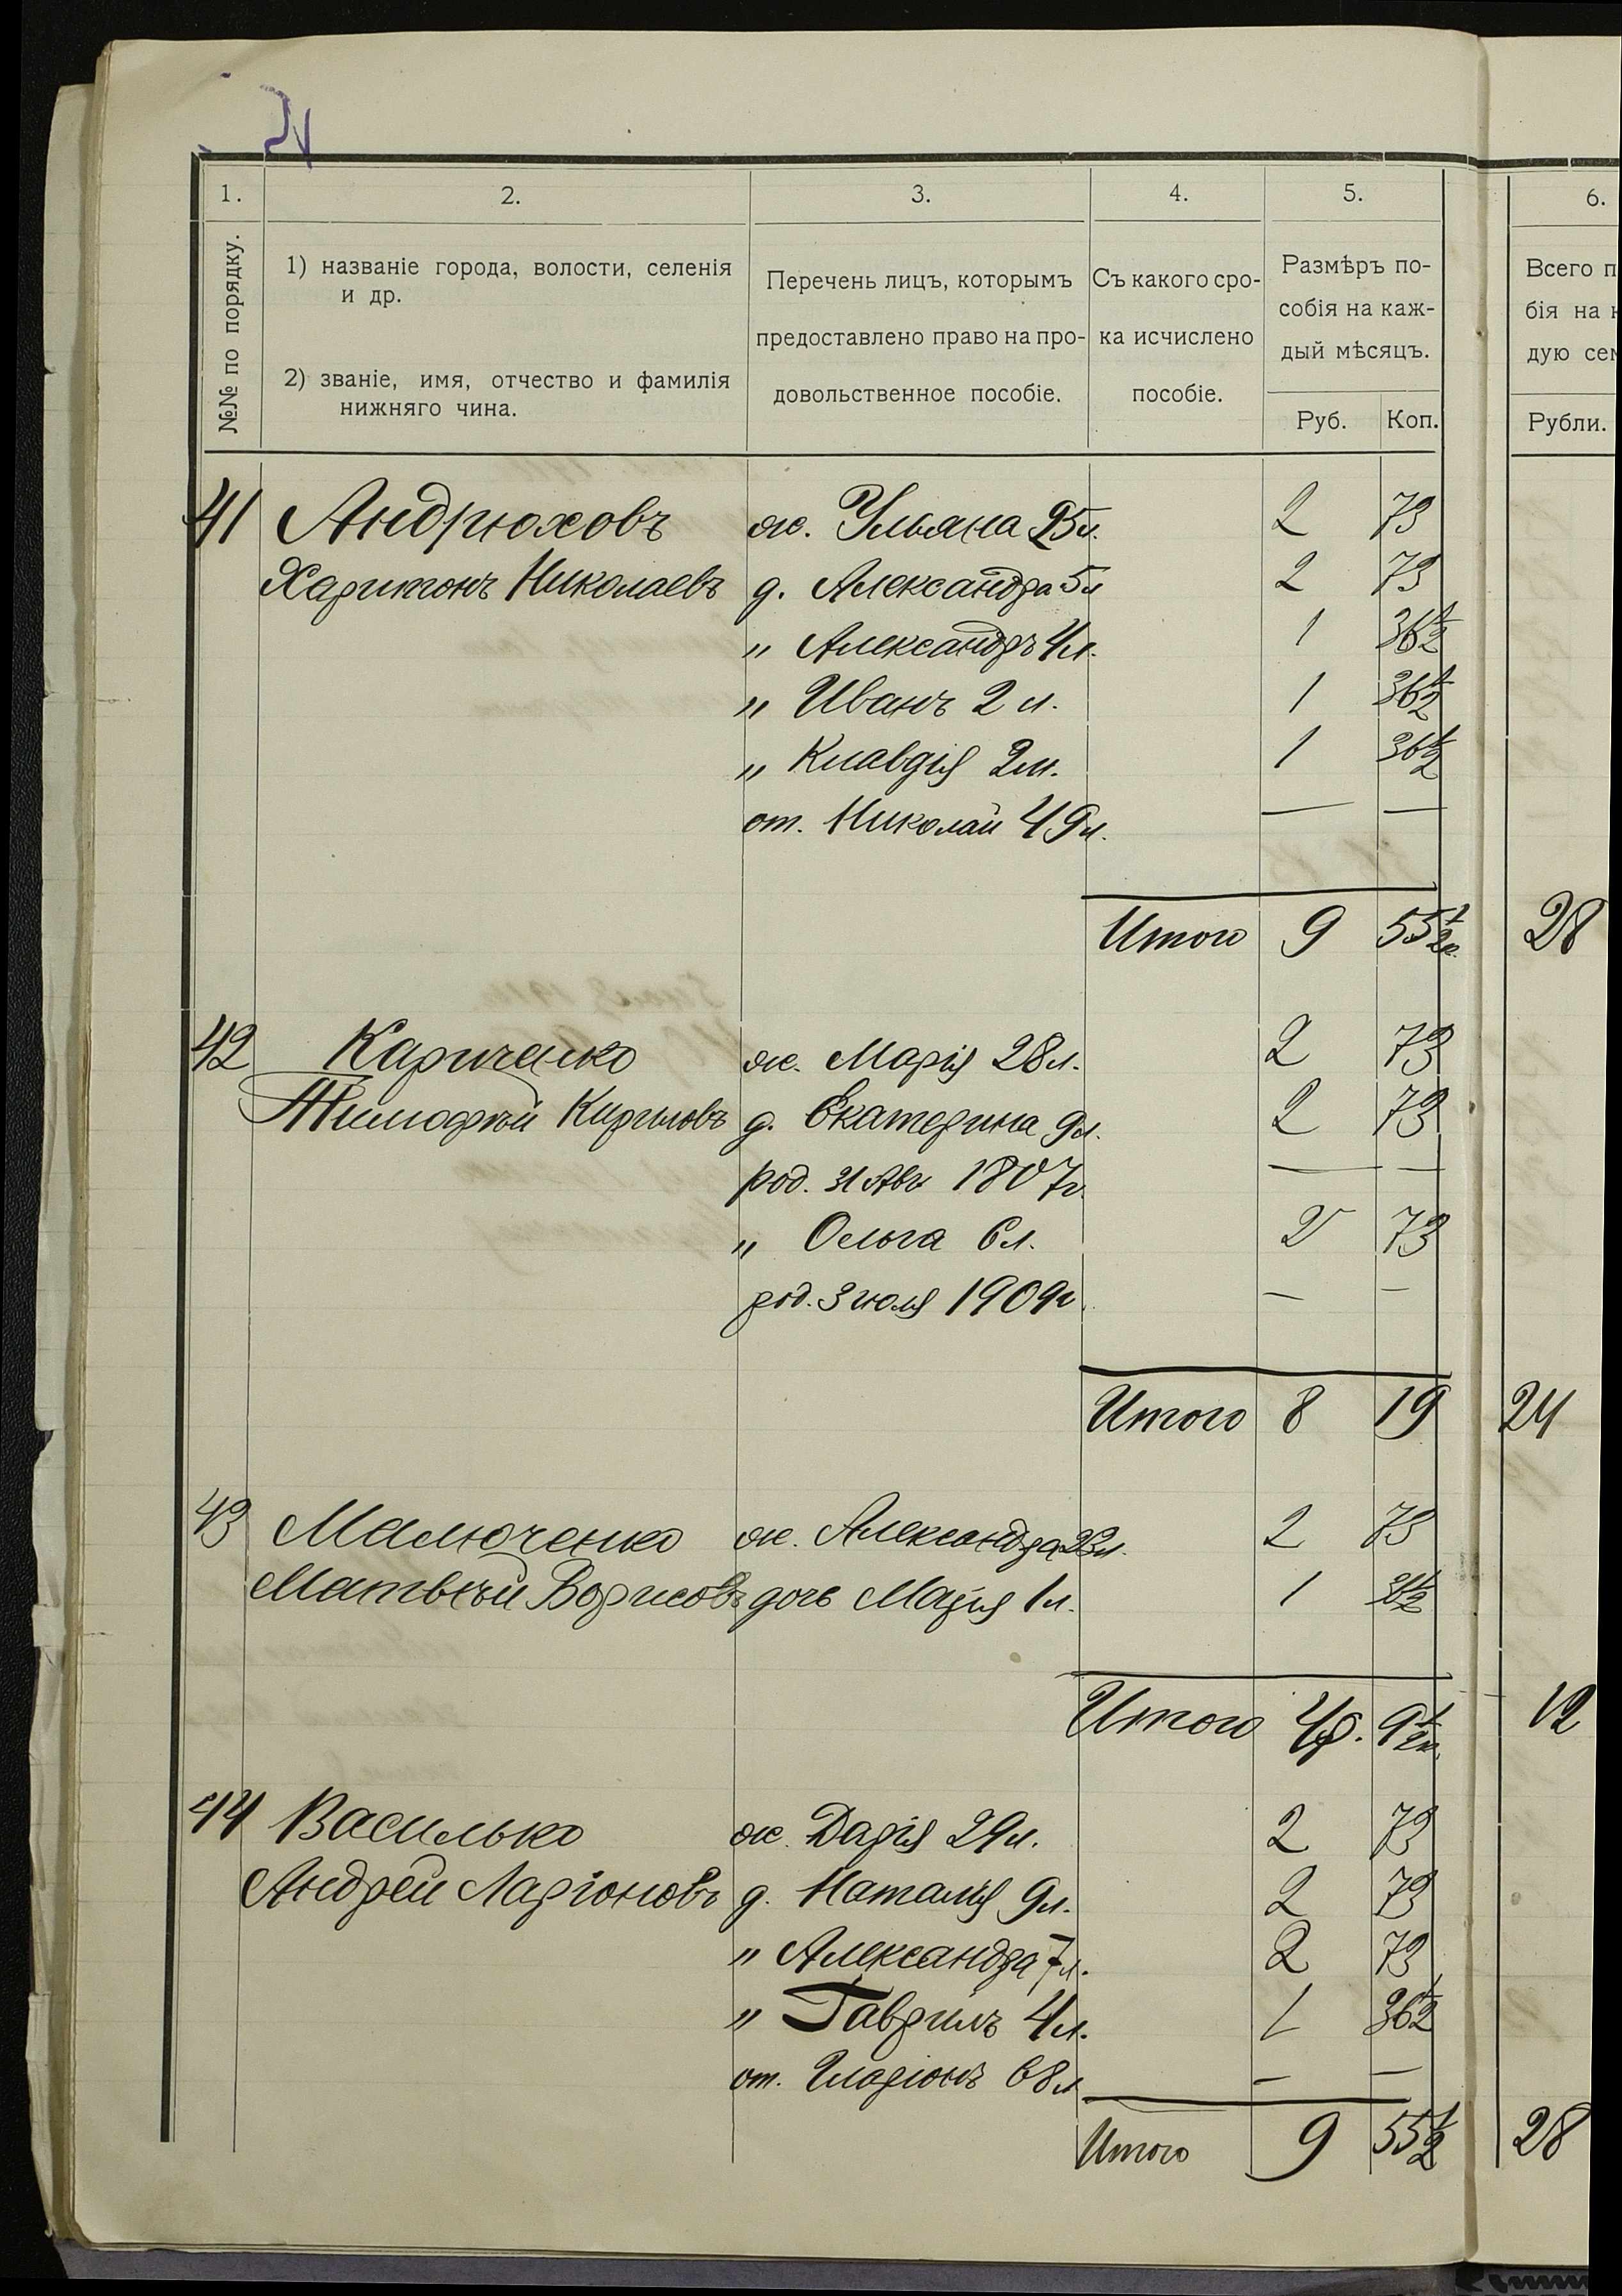 1.
2.
3.
4.
5.
6.
№№ по порядку.
1) названіе города, волости, селенія
и др.
2) званіе, имя, отчество и фамилія
нижняго чина.
Перечень лицъ, которымъ
предоставлено право на про-
довольственное пособіе.
Съ какого сро-
ка исчислено
пособіе.
Размѣръ по-
собія на каж-
дый мѣсяцъ.
Руб. Коп.
Всего п
бія на к
дую сем
Рубли.
41 Андрюховъ ж. Ульяна 25 л. 2 73
Харитонъ Николаевъ д. Александра 5 л 2 73
" Александръ 4 л. 1 36 1/2
" Иванъ 2 л. 1 36 1/2
" Клавдія 2 м. 1 36 1/2
от. Николай 49 л. — —
Итого 9 55 1/2 к. 28
42 Карпченко ж. Марія 28 л. 2 73
Тимофѣй Кириловъ д. Екатерина 9 л. 2 73
род. 31 Авг 1807 г. — —
" Ольга 6 л. 2 73
род. 3 июля 1909 г — —
Итого 8 19 24
43 Малюченко ж. Александра 23 л. 2 73
Матвѣй Борисовъ дочь Марія 1 л. 1 36 1/2
Итого 4 р. 9 1/2 к. 12
44 Василько ж. Дарія 29 л. 2 73
Андрей Ларіоновъ д. Наталія 9 л. 2 73
" Александра 7 л. 2 73
" Гаврилъ 4 л. 1 36 1/2
от. Иларіонъ 68 л — —
Итого 9 55 1/2 28